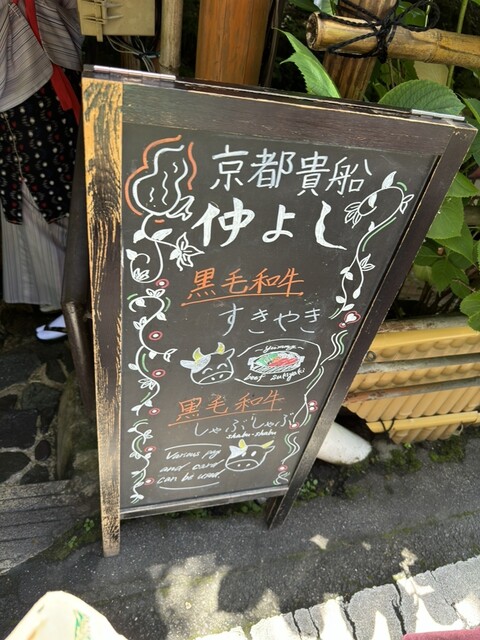 京都貴船
仲よし
黒毛和牛
すきやき
~yummy~
beef sukiyaki
黒毛和牛
しゃぶしゃぶ
shabu-shabu
Various pay
and card
can be used.